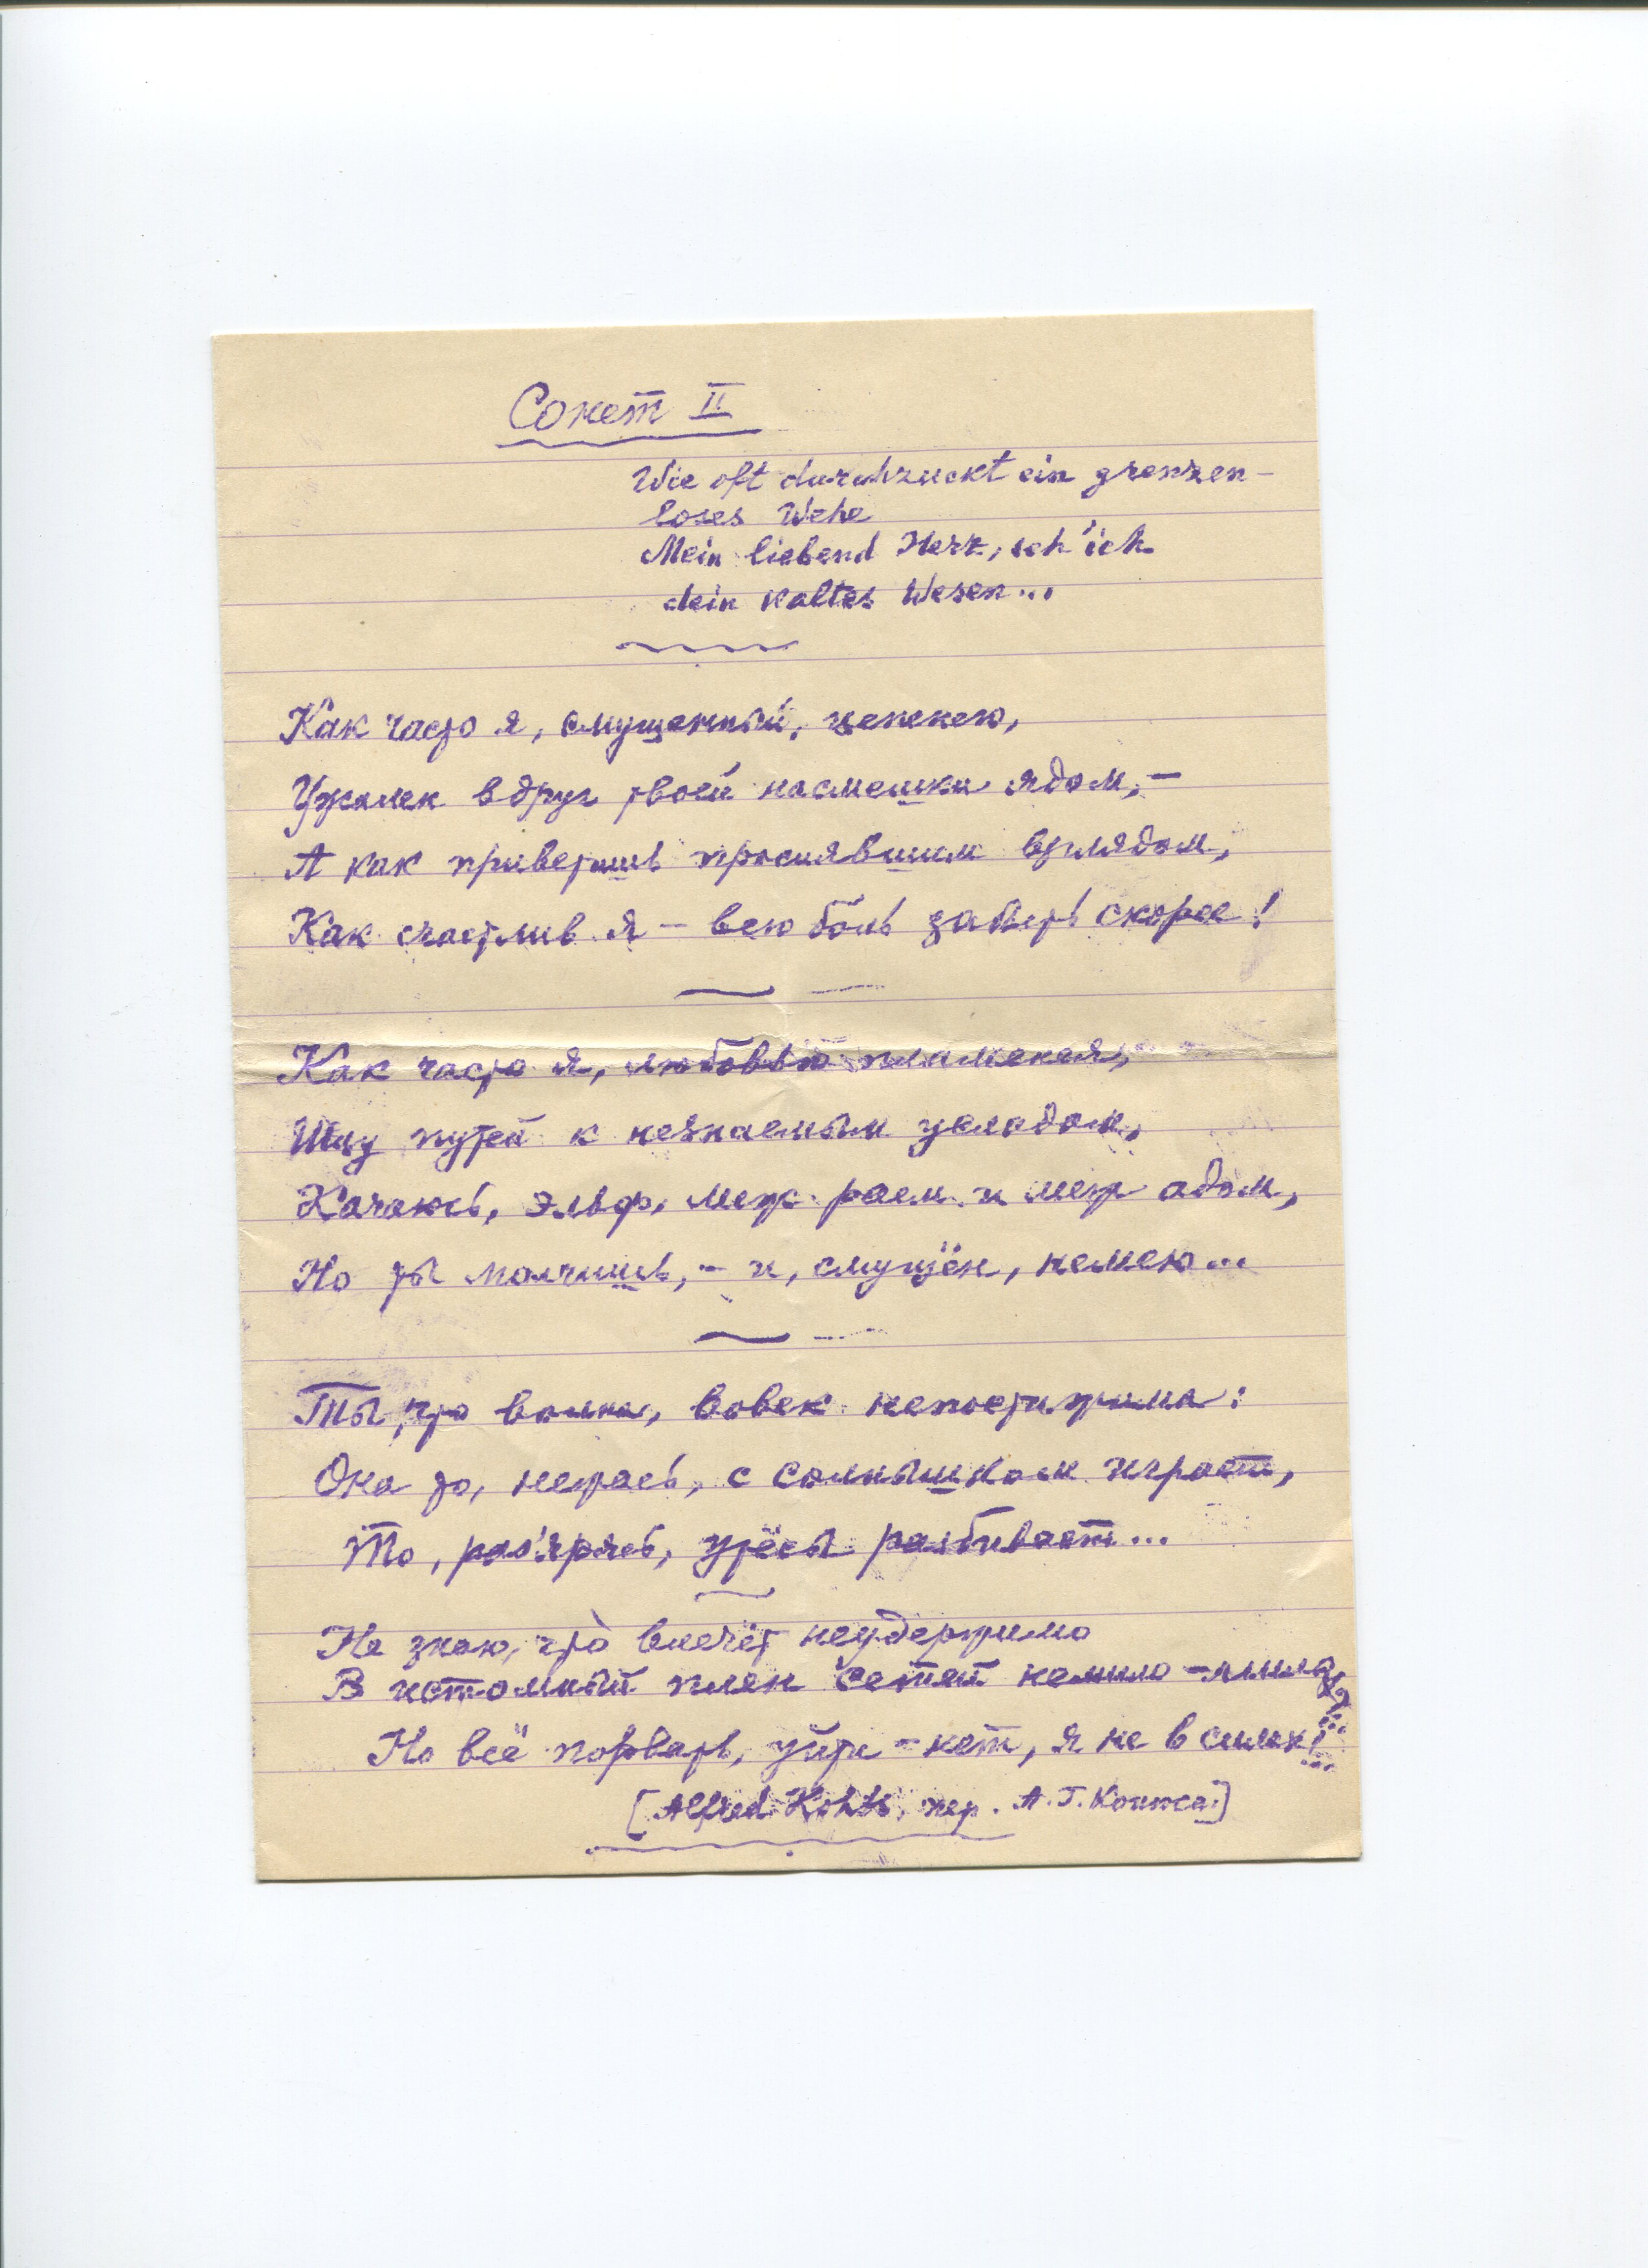 Сонет II
Wie oft durchzuckt ein grenzen-
loses Wehe
Mein liebend Herz, seh' ich
dein kaltes Wesen...
Как часто я, смущенный, цепенею,
Ужален вдруг твоей насмешки ядом, –
А как приветишь просиявшим взглядом,
Как счастлив я – всю боль забыть скорее!
Как часто я, любовью пламенея,
Ищу путей к незнаемым усладам,
Качаюсь, эльф, меж раем и меж адом,
Но ты молчишь, – и, смущён, немею...
Ты, что волна, вовек непостижима:
Она то, нежась, с солнышком играет,
То, раз'ярясь, утёсы разбивает...
Не знаю, что влечёт неудержимо
В истомный плен сетей немило-милых,
Но всё порвать, уйти – нет, я не в силах!..
[Alfred Kohts, пер. А. Г. Коннса]